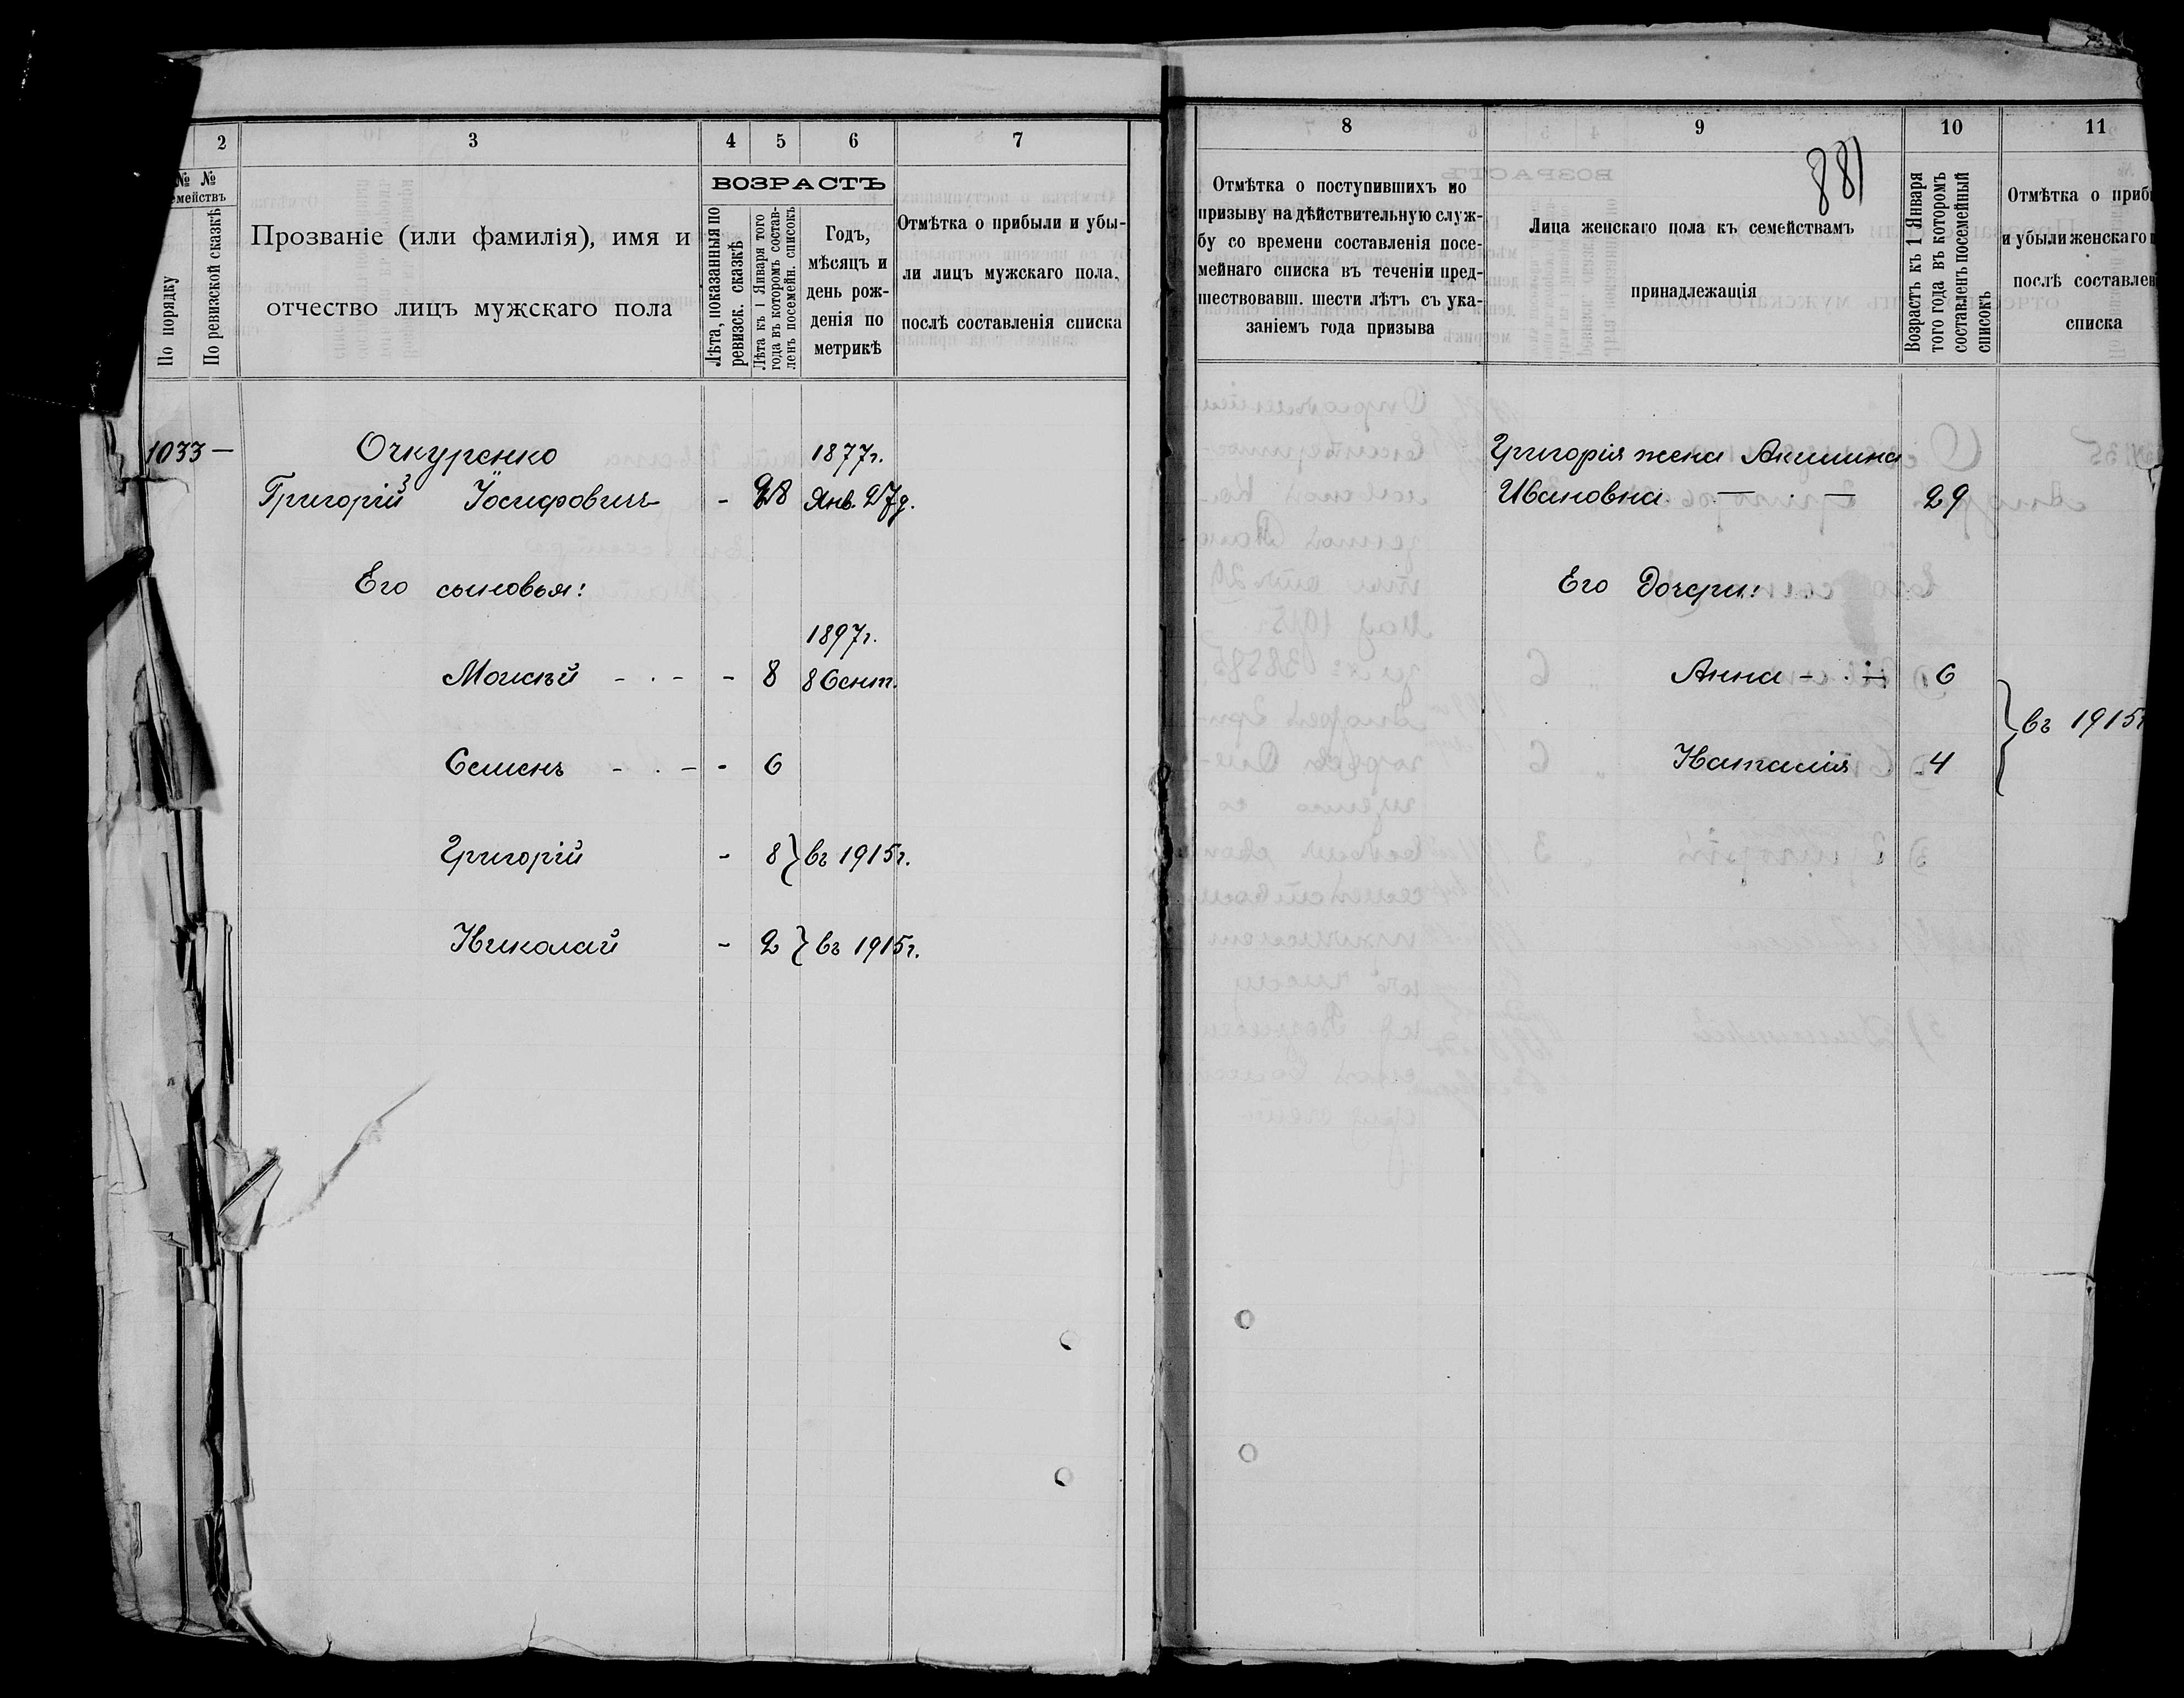 2
3
4
5
6
7
№ №
семействъ
По порядку
По ревизской сказкѣ
Прозваніе (или фамилія), имя и
отчество лицъ мужскаго пола
ВОЗРАСТЪ
Лѣта, показанныя по
ревизск. сказкѣ
Лѣта къ 1 Января того
года въ которомъ состав-
ленъ посемейн. списокъ
Годъ,
мѣсяцъ и
день рож-
денія по
метрикѣ
Отмѣтка о прибыли и убы-
ли лицъ мужскаго пола,
послѣ составленія списка
1033 —
Очкуренко
1877г.
Григорій 3 Іосифовичъ - 28 Янв. 27д.
Его сыновья:
1897г.
Моисѣй - . - - 8 8 Сент.
Семенъ - . - - 6
Григорій - 8 } въ 1915г.
Николай - 2 } въ 1915г.
8
9
10
11
881
Отмѣтка о поступившихъ по
призыву на дѣйствительную служ-
бу со времени составленія посе-
мейнаго списка въ теченіи пред-
шествовавш. шести лѣтъ съ ука-
заніемъ года призыва
Лица женскаго пола къ семействамъ
принадлежащія
Возрастъ къ 1 Января
того года въ которомъ
составленъ посемейный
списокъ
Отмѣтка о приб
и убыли женскаго
послѣ составлен
списка
Григорія жена Акилина
Ивановна — . — 29
Его дочери:
Анна - . - 6
въ 1915г
Наталія 4